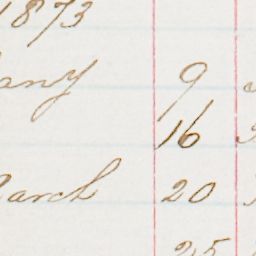 1873
any 9
16
arch 20
25